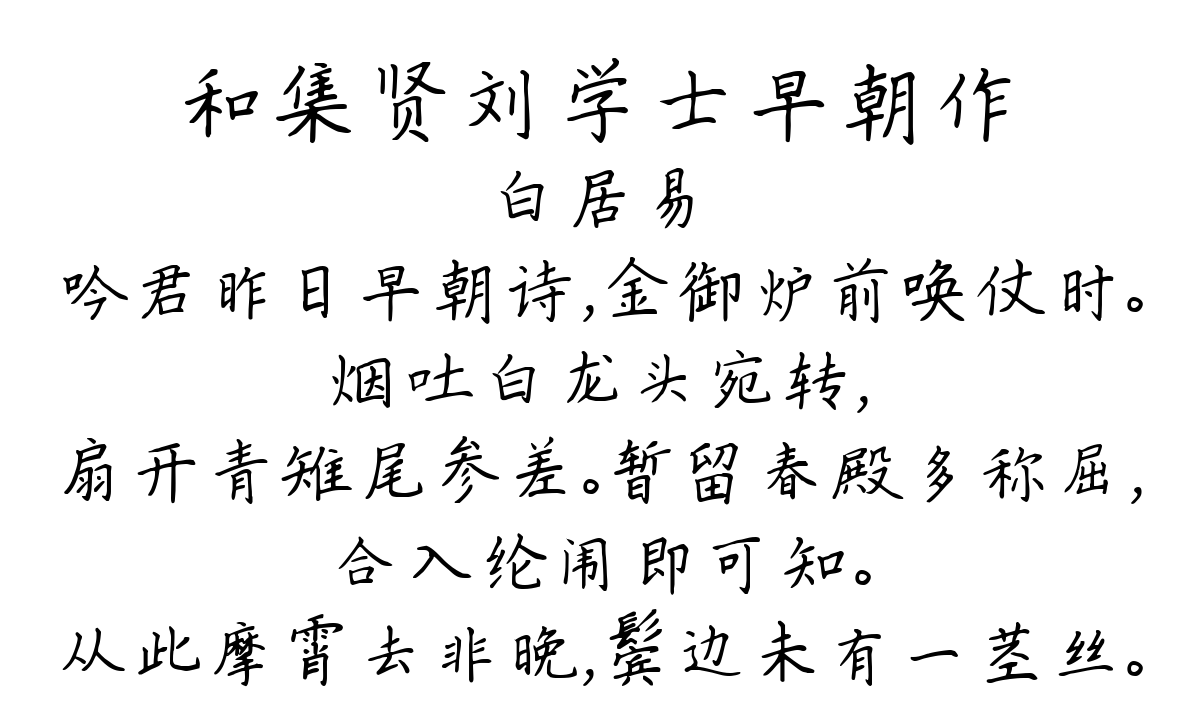 和集贤刘学士早朝作
白居易
吟君昨日早朝诗,金御炉前唤仗时。
烟吐白龙头宛转,
扇开青雉尾参差。暂留春殿多称屈,
合入纶闱即可知。
从此摩霄去非晚,鬓边未有一茎丝。